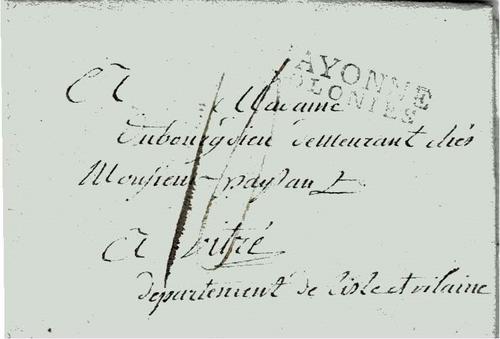 AYONNE
OLONIES
A Madame
Dubourgdieu demeurant chés
Monsieur paysant
A vitré
département de lisle et vilaine